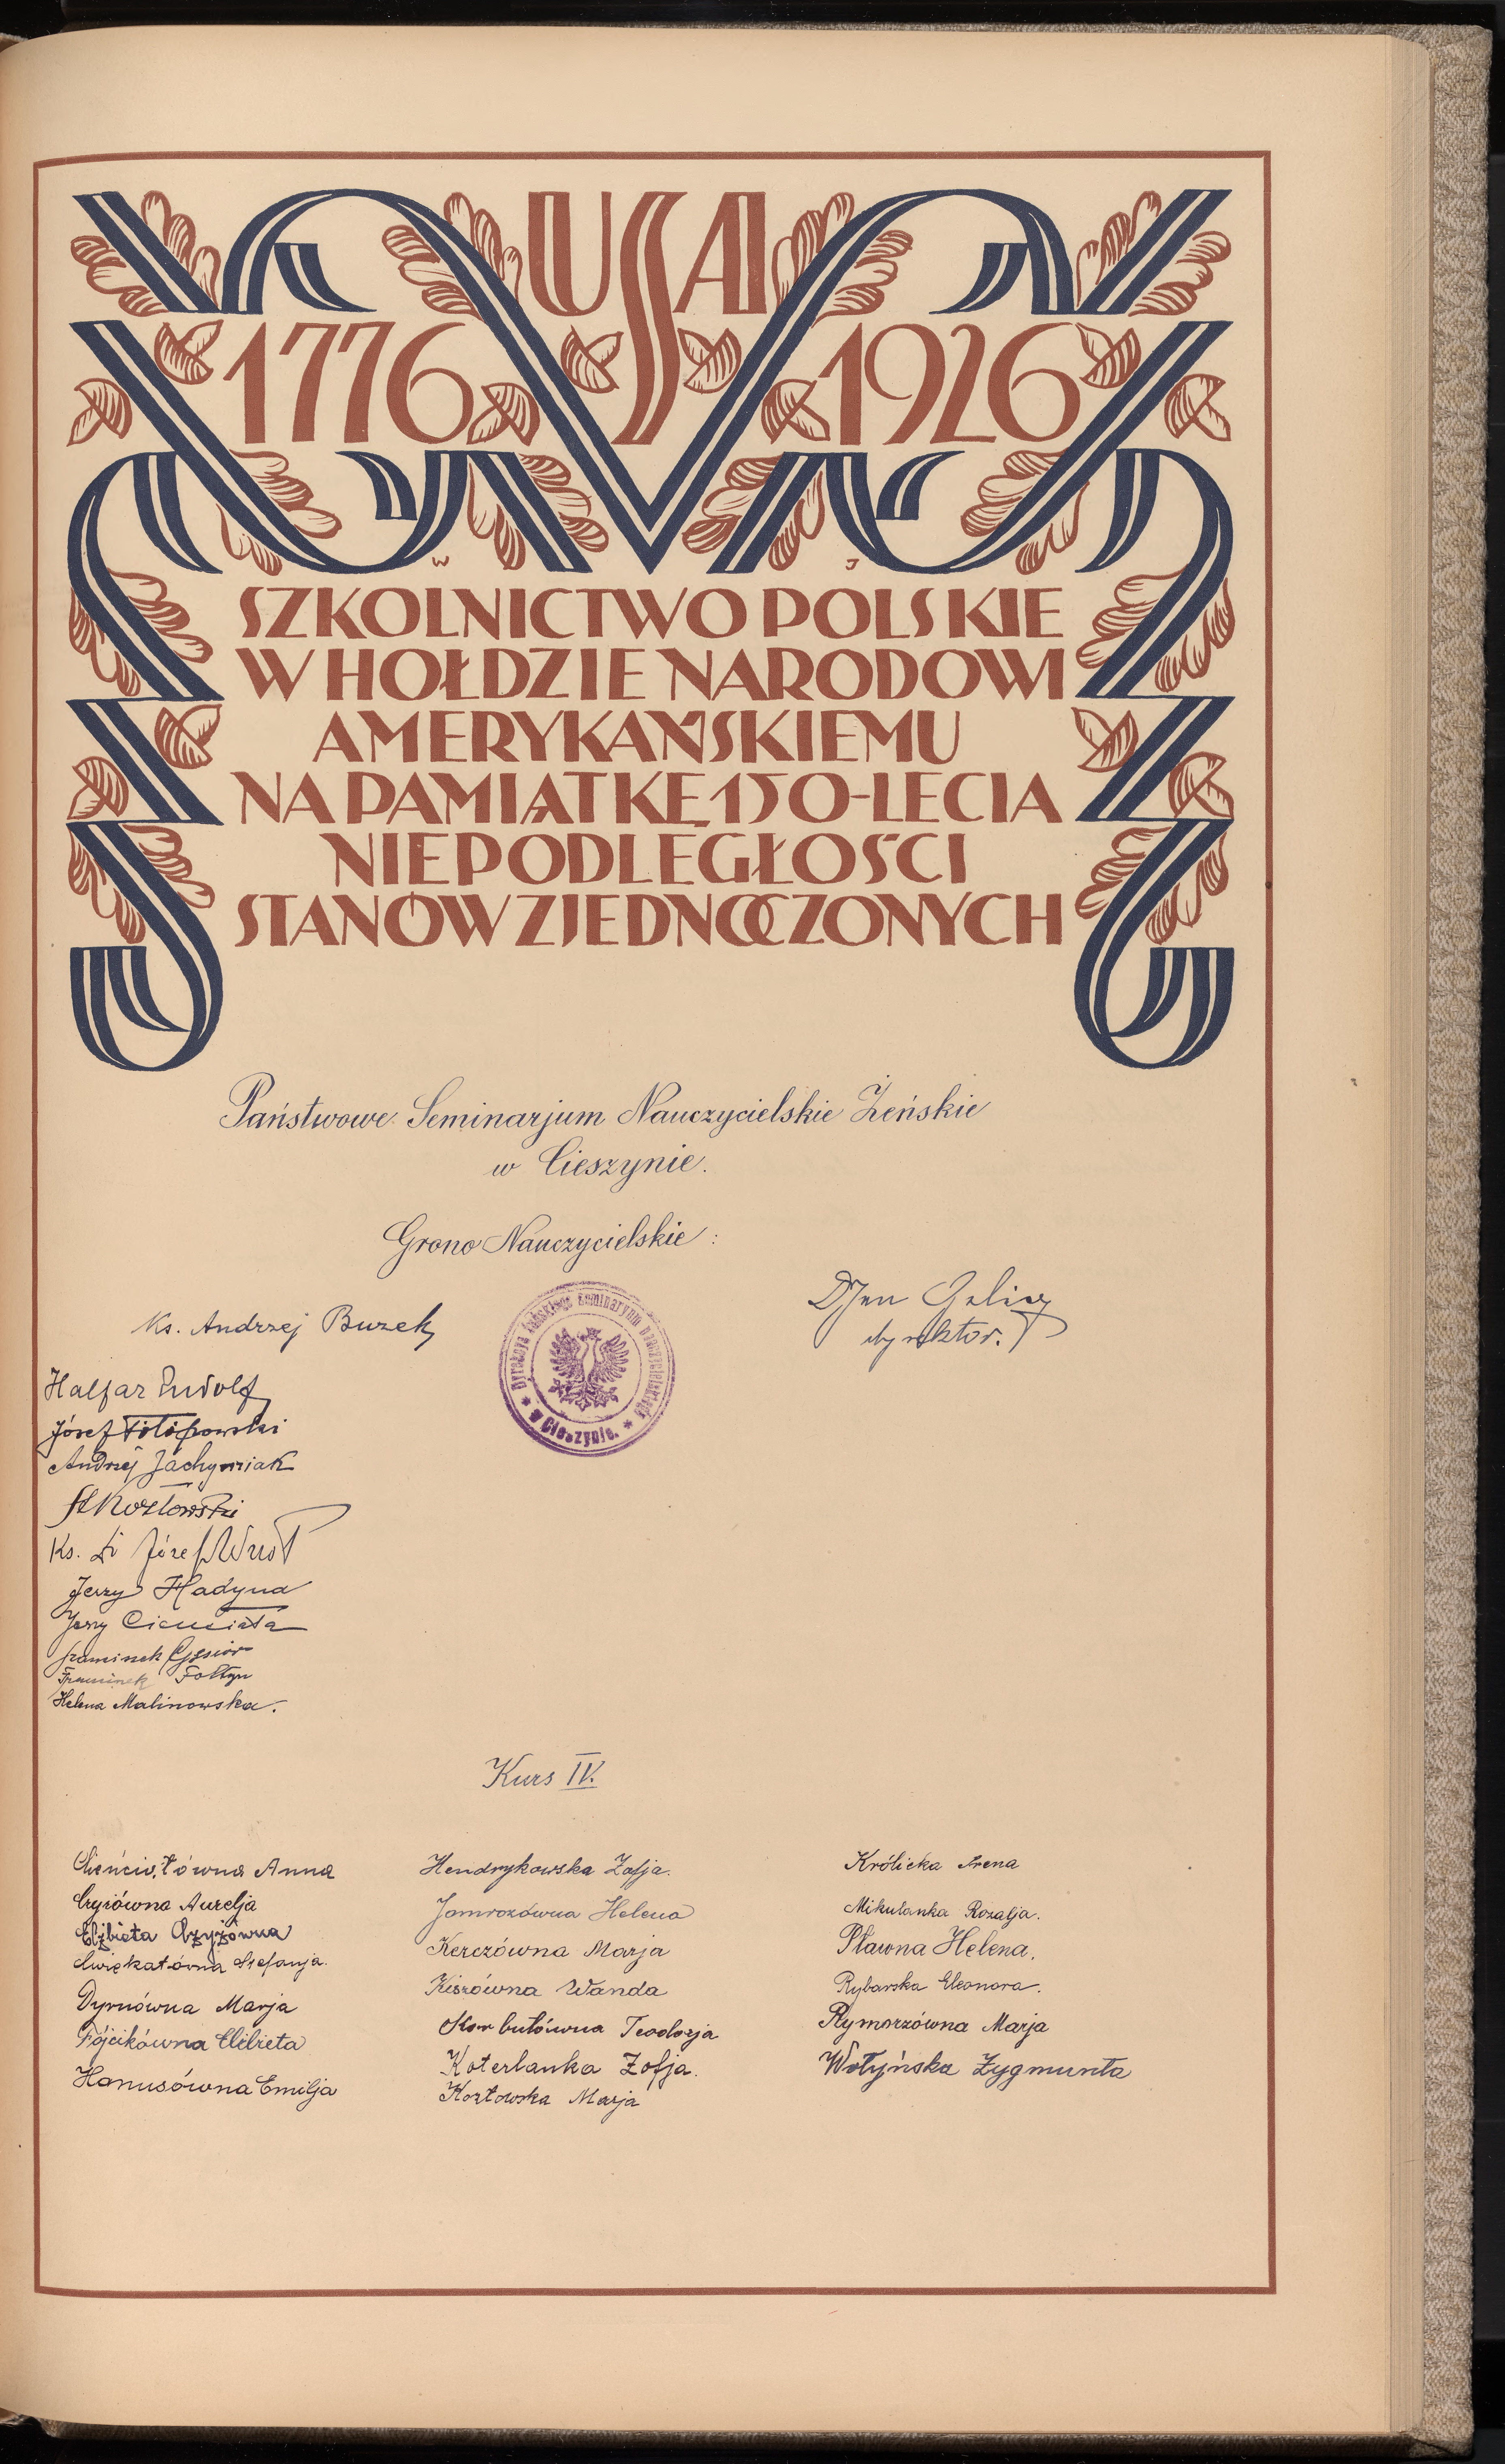 USA
1776 1926
W J
SZKOLNICTWO POLSKIE
W HOŁDZIE NARODOWI
AMERYKAŃSKIEMU
NA PAMIĄTKĘ 150-LECIA
NIEPODLEGŁOŚCI
STANÓW ZJEDNOCZONYCH
Państwowe Seminarjum Nauczycielskie Żeńskie
w Cieszynie.
Grono Nauczycielskie:
Dr Jan Galicz
dyrektor.
Ks. Andrzej Buzek
Dyrekcya żeńskiego Seminaryum nauczycielskiego
* w Cieszynie. *
Halfar Rudolf
Józef
Andrzej Jachymiak
St Kozłowski
Ks. Dr Józef
Jerzy Hadyna
Jerzy Cienciała
Franciszek Gąsior
Franciszek Foltyn
Helena Malinowska.
Kurs IV.
Cieńciałówna Anna
Czyżówna Aurelja
Elżbieta Czyżówna
Ćwiękatówna Stefanja.
Dyrnówna Marja
Fójcikówna Elżbieta
Hanusówna Emilja
Hendrykowska Zofja.
Jamrozówna Helena
Kerczówna Marja
Kiszówna Wanda
Korbutówna Teodozja
Koterlanka Zofja.
Kozłowska Marja
Królicka Irena
Mikulanka Rozalja.
Pławna Helena.
Rybarska Eleonora.
Rymorzówna Marja
Wołyńska Zygmunta